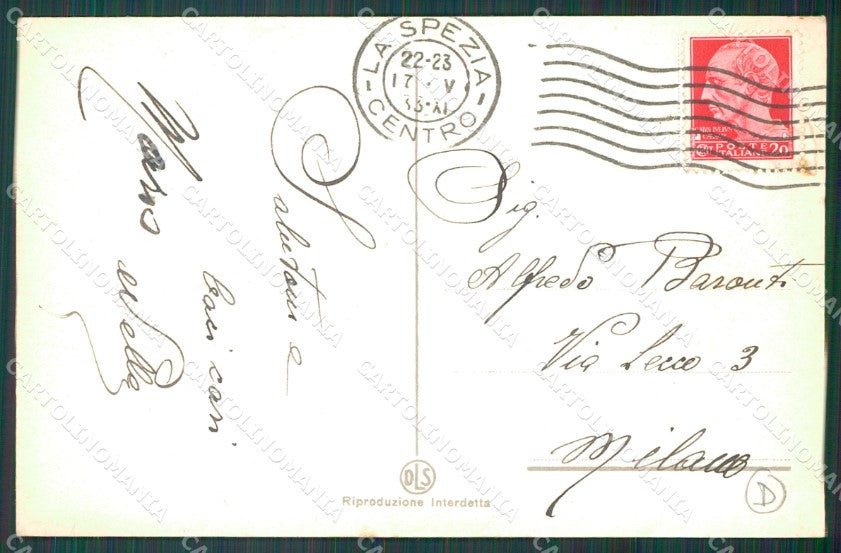 LA SPEZIA
22-23
17 · V
33·XI
CENTRO
POSTE
ITALIANE 20
Salutoni e
baci cari
Nella
Sig.
Alfredo Baronti
Via Lecco 3
Milano
DLS
Riproduzione Interdetta
D
CARTOLINOMANIA